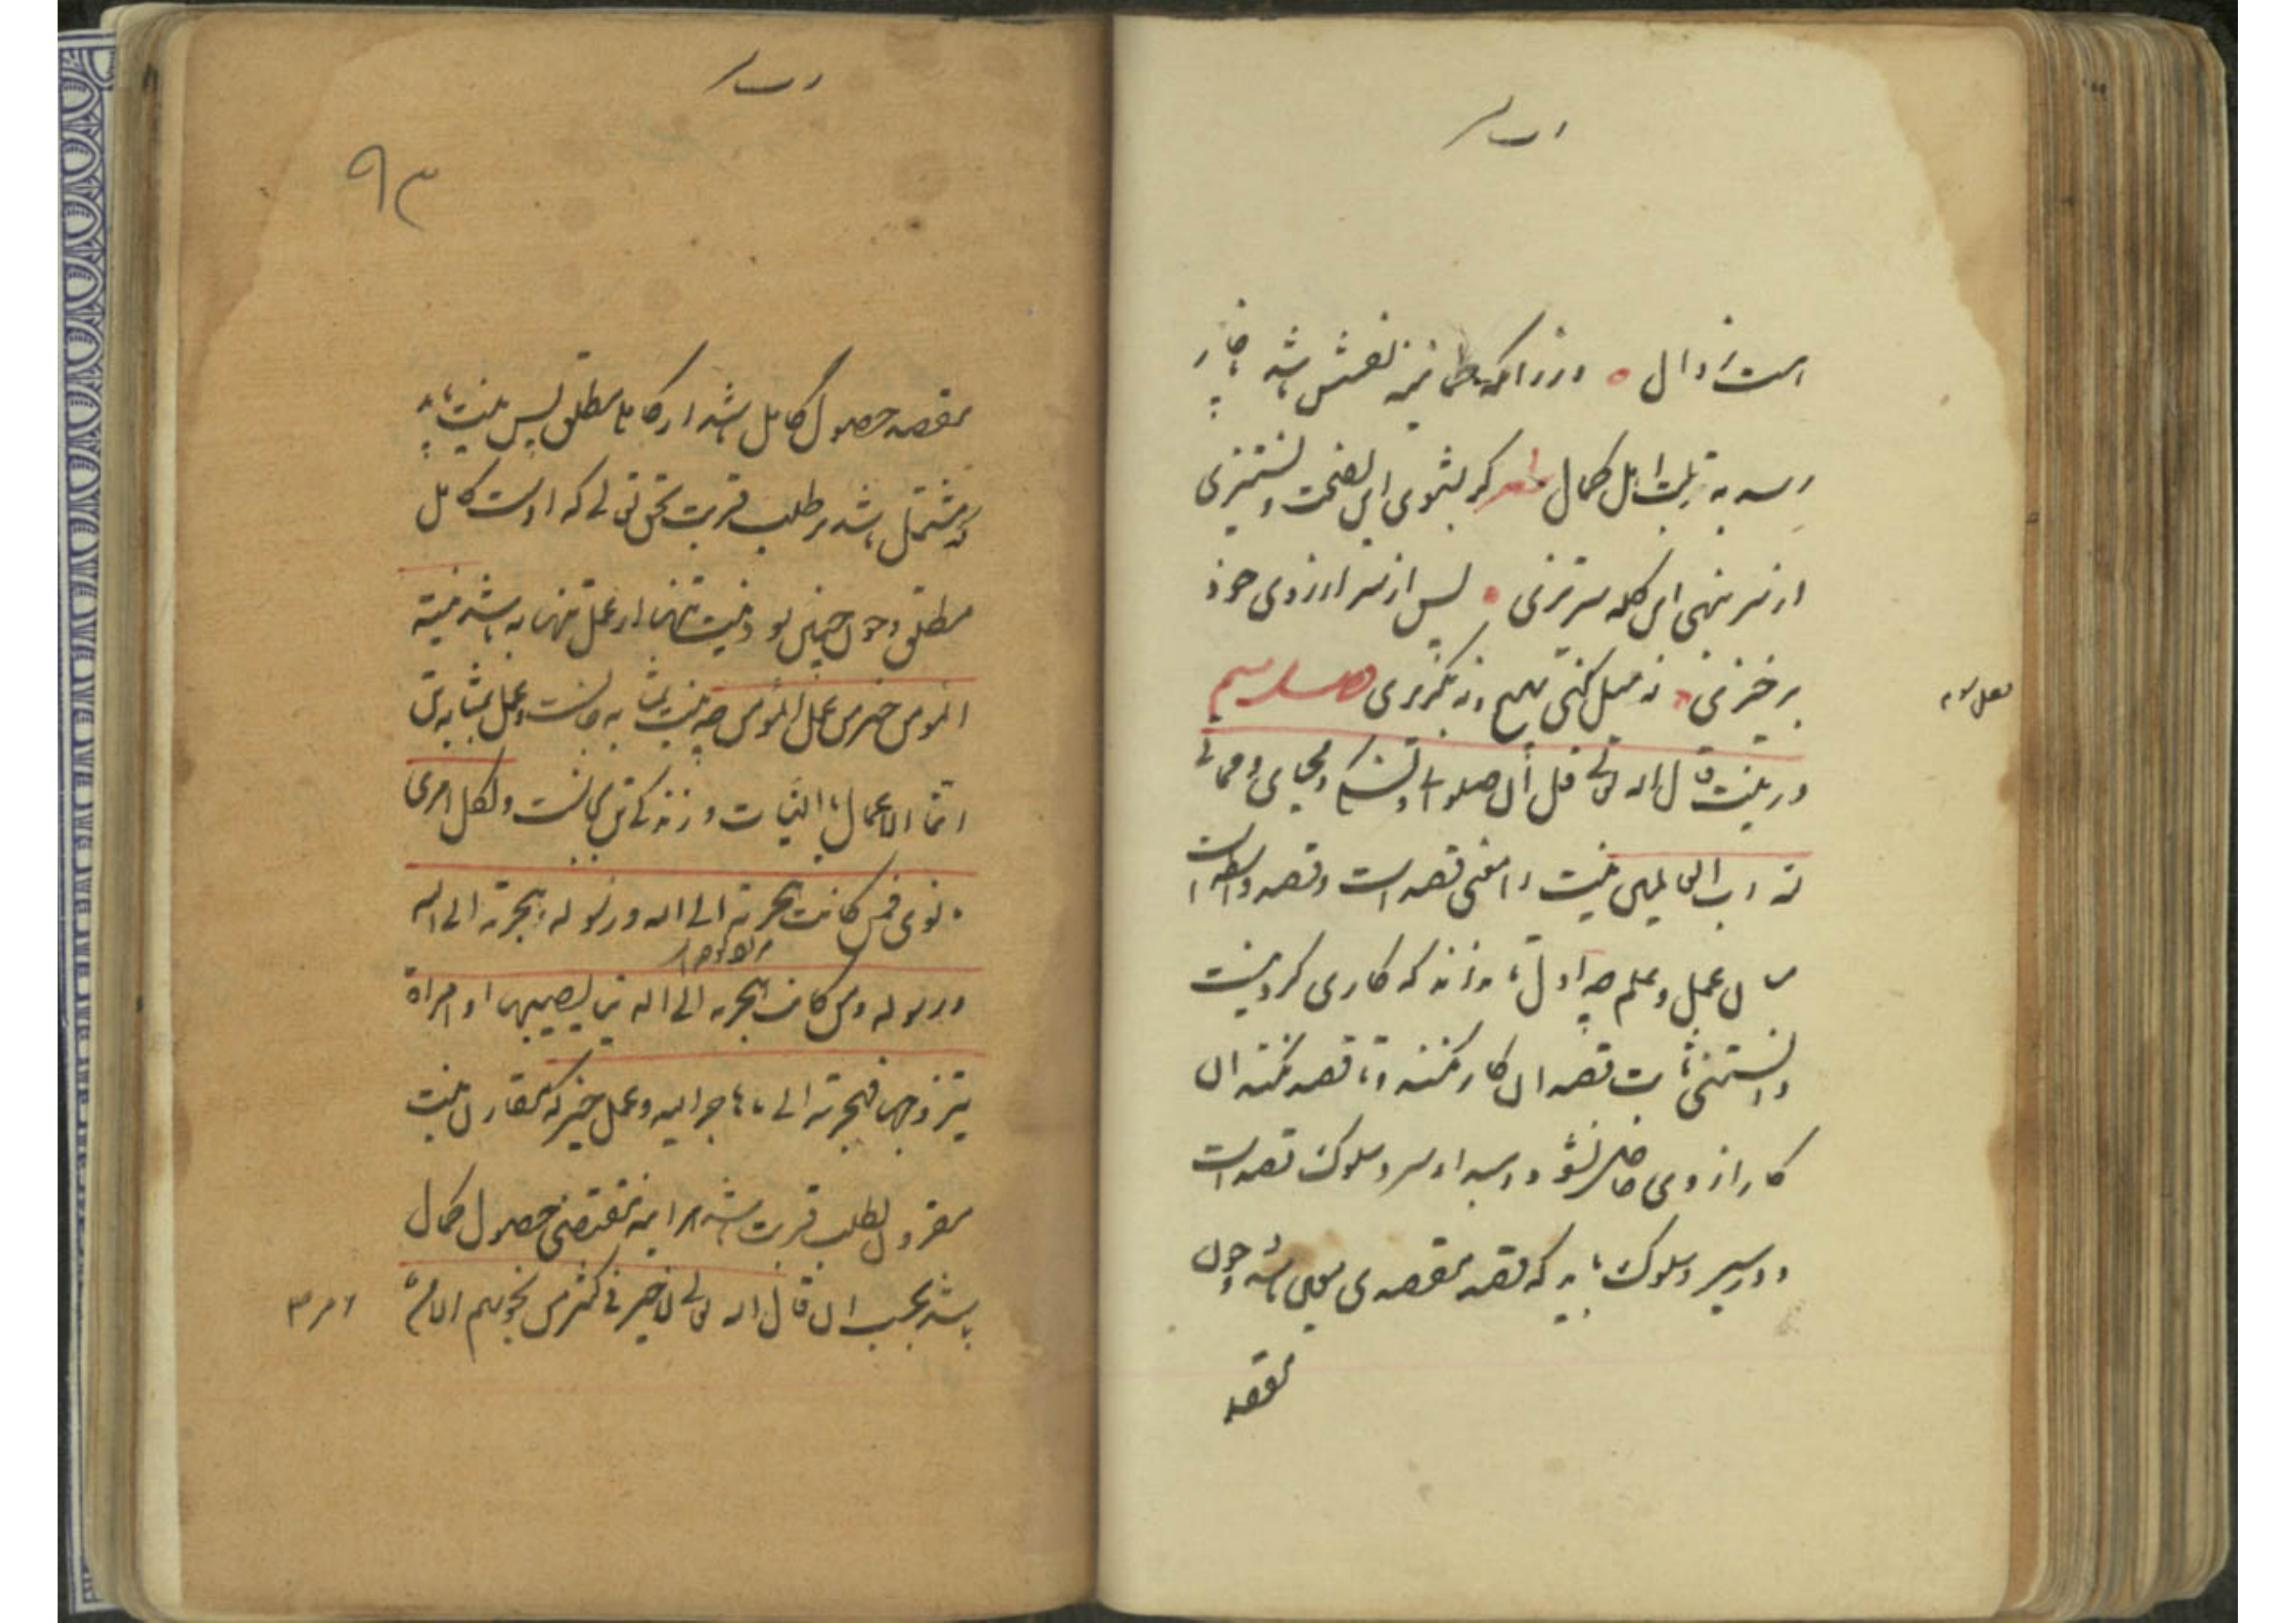 است زوال و در آنکه طمانینه نفسش باشد ناچار
رسد به تربیت اهل کمال شعر گر بشنوی این نصیحت و نستیزی
از سر بنهی این کله سرتیزی پس از سر آرزوی خود
برخیزی نه میل کنی بهیچ و نه بگریزی فصل سیم
در نیت قال الله تعالی قل ان صلوتی و نسکی و محیای و مماتی
لله رب العالمین نیت را معنی قصد است و قصد واسطه است
میان عمل و علم چه اول تا نداند که کاری کردنیست
و دانستنی ثابت قصد آن کار نکند و تا قصد نکند آن
کار از وی حاصل نشود و مبداء سیر و سلوک قصد است
و در سیر و سلوک باید که قصد مقصدی معین باشد و چون
مقصد
۹۳
مقصد حصول کمال باشد از کامل مطلق پس نیت باید
که مشتمل باشد بر طلب قربت بحق تعالی که اوست کامل
مطلق و چون چنین بود نیت تنها از عمل تنها به باشد نیة
المومن خیر من عمل المومن چه نیت بمثابه جانست و عمل بمثابه تن
انما الاعمال بالنیات و زندگی تن بجانست و لکل امرئ
ما نوی فمن کانت هجرته الی الله و رسوله فهجرته الی الله
و رسوله و من کانت هجرته الی الدنیا یصیبها او امراة
یتزوجها فهجرته الی ما هاجر الیه و عمل خیر که مقارن نیت
مقرون بطلب قربت باشد هر آینه مقتضی حصول کمال
باشد بحسب آن قال الله تعالی لا خیر فی کثیر من نجویهم الا من